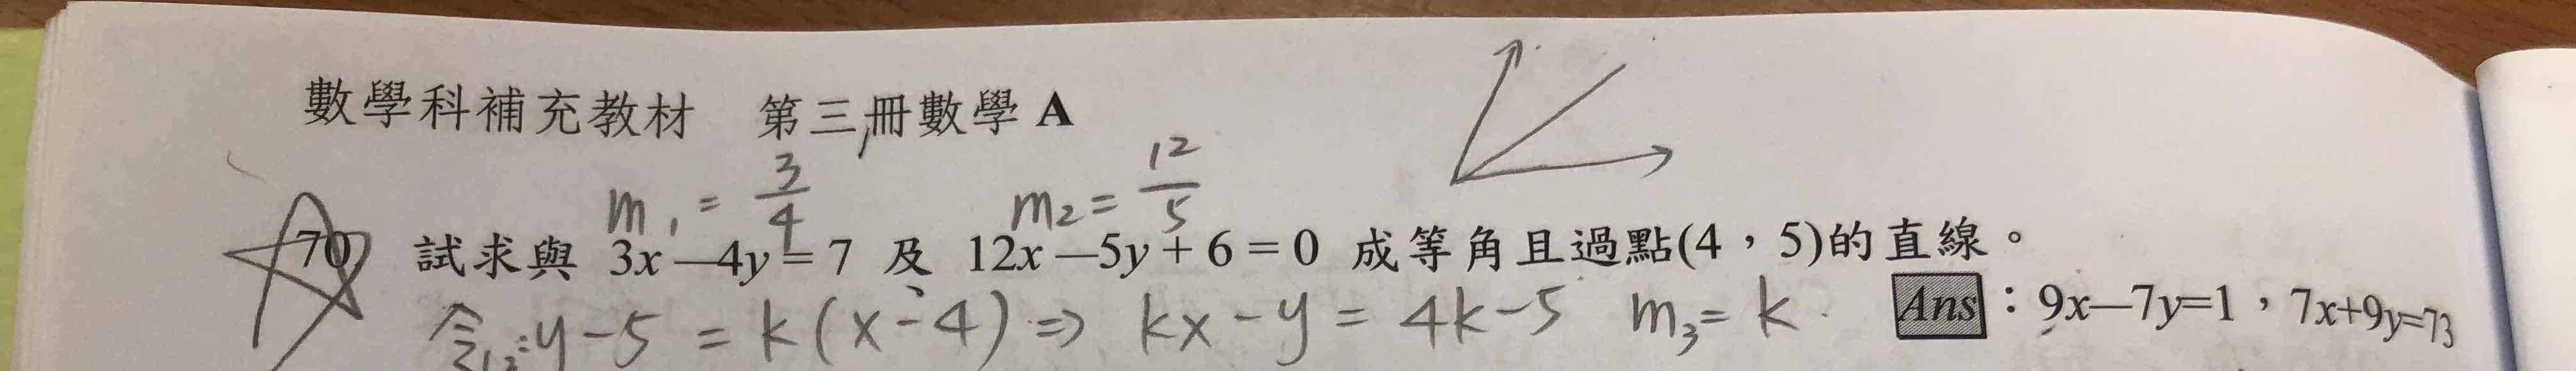 數學科補充教材 第三冊數學 A
m₁ = 3/4 m₂ = 12/5
70 試求與 3x—4y = 7 及 12x—5y + 6 = 0 成等角且過點(4，5)的直線。
令 y-5 = k(x-4) ⇒ kx-y = 4k-5 m₃ = k
Ans：9x—7y=1，7x+9y=73